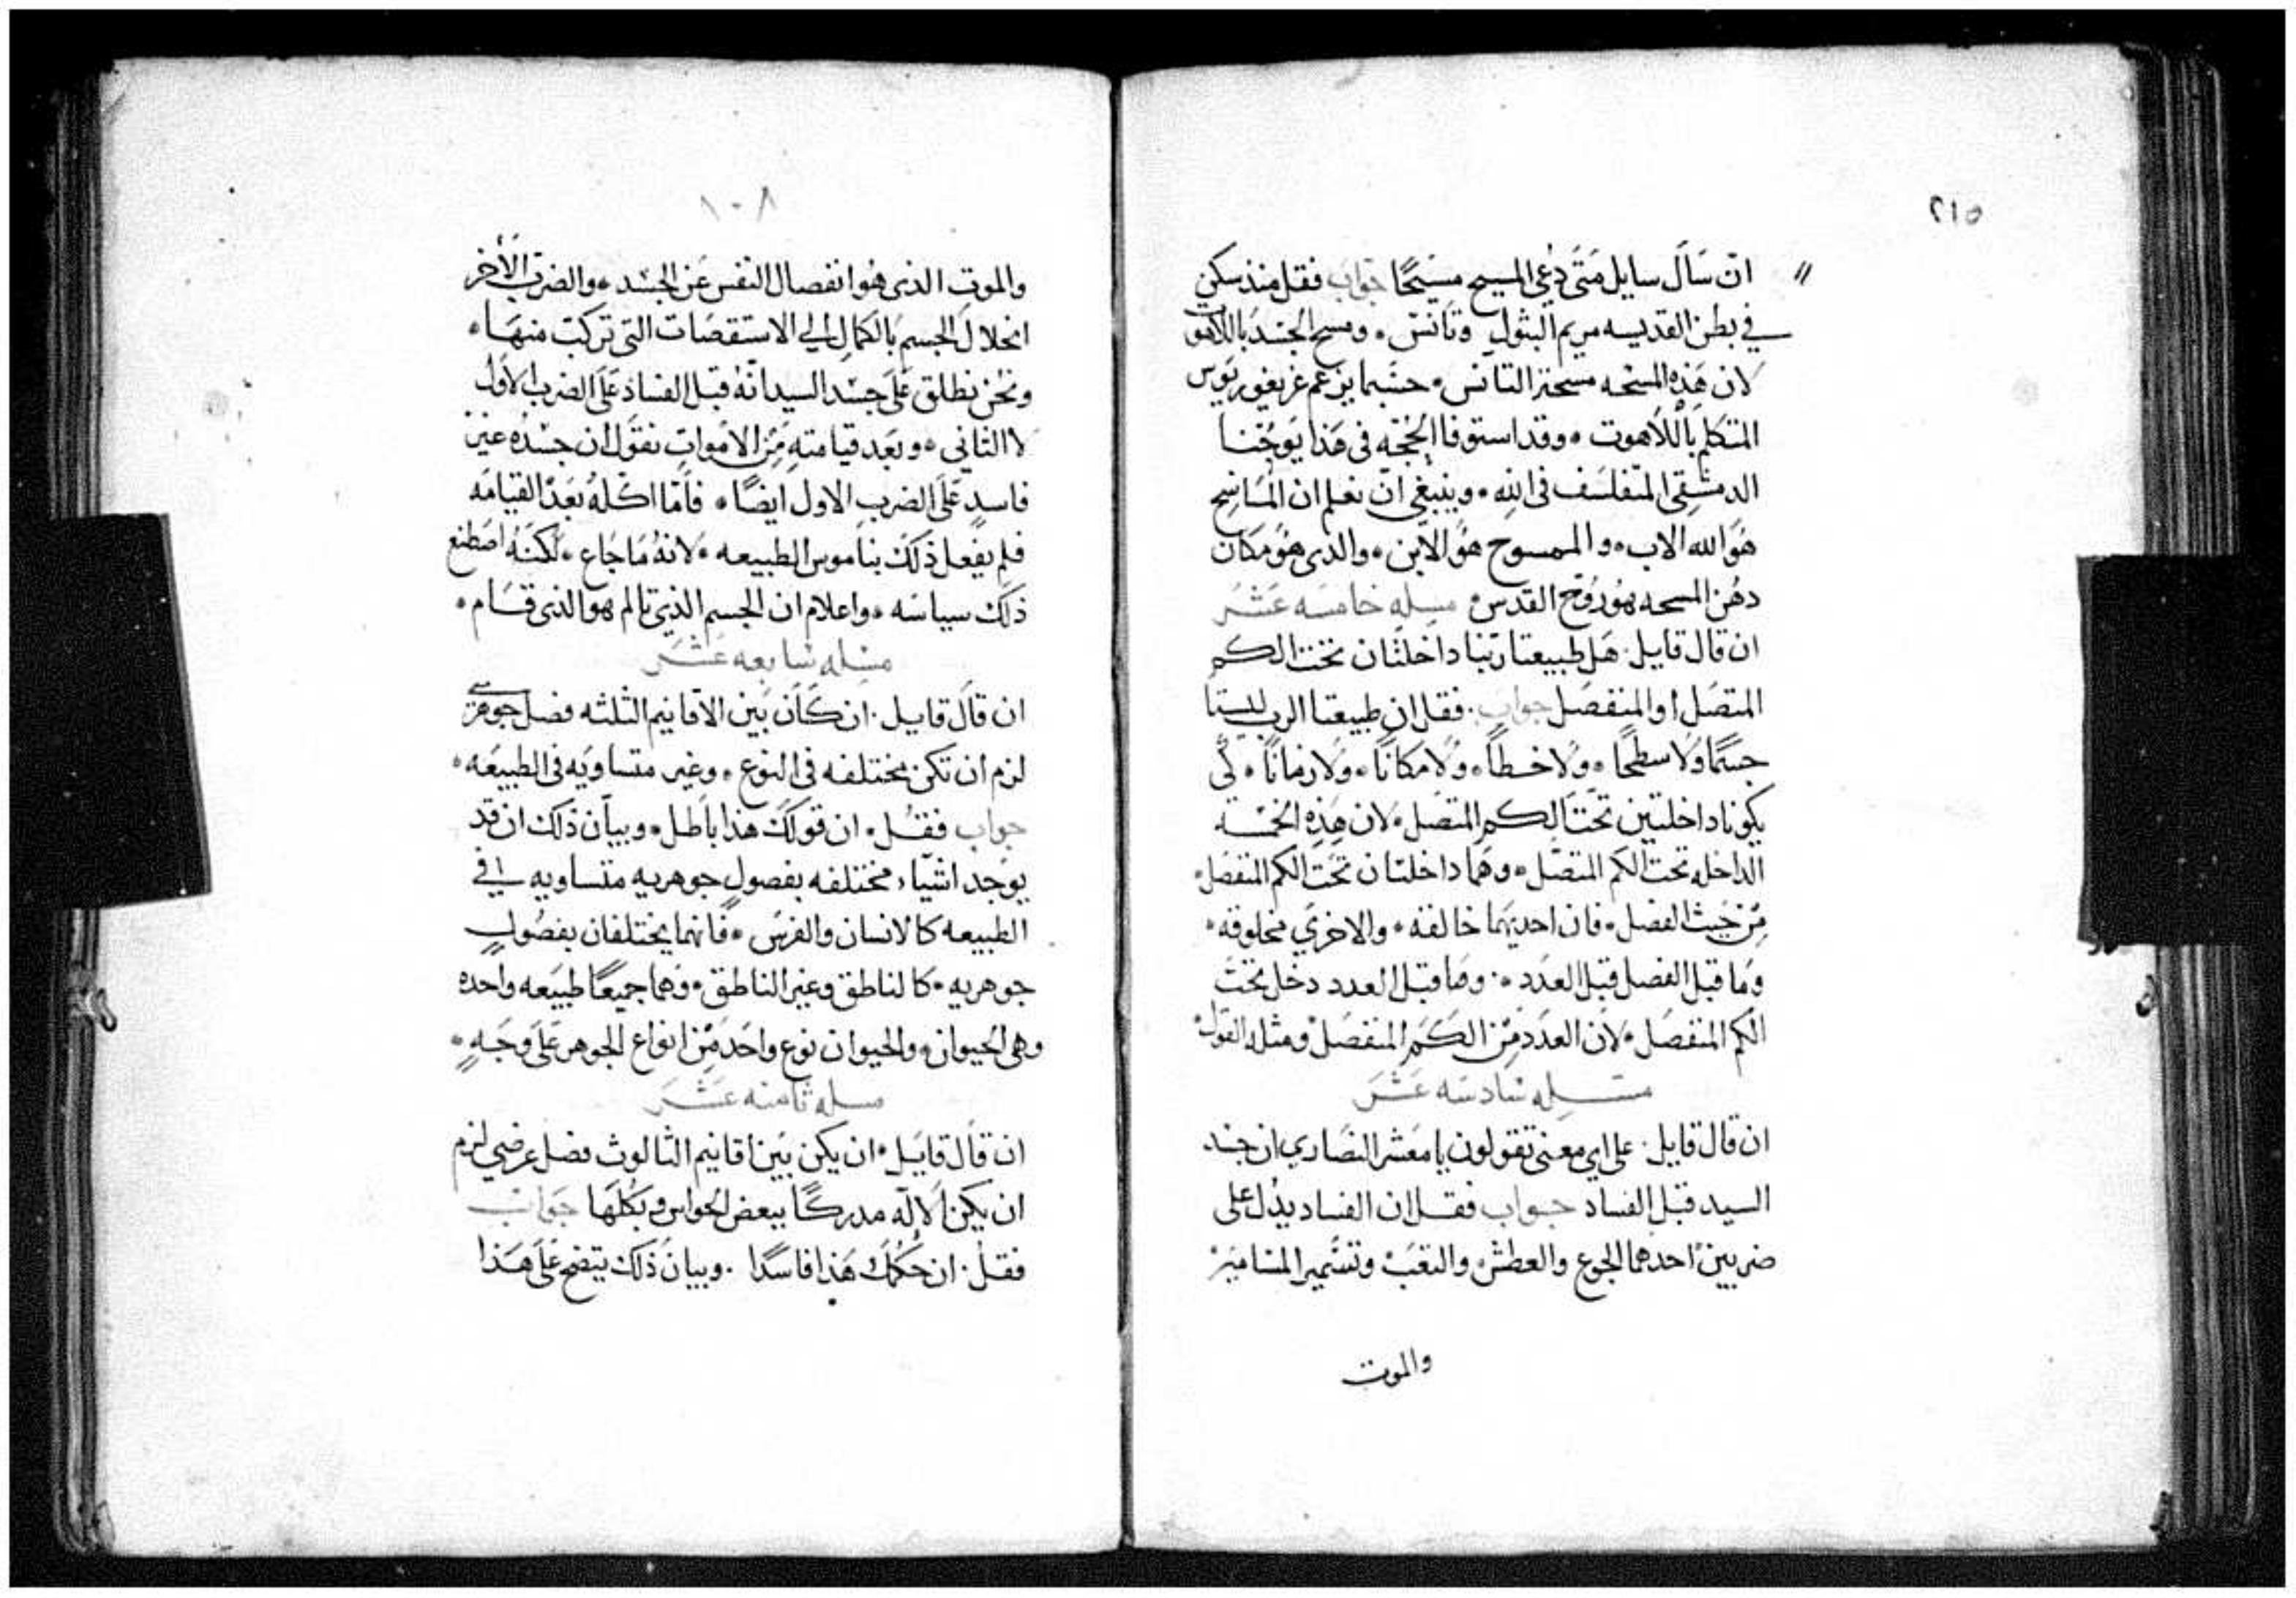 ٢١٥
ان سَاَل سايل مَتَى دُعي المسيح مسيحًا جواب فقل منذ سكن
في بطن القديسه مريم البثول وتانس ٠ ومسح الجسد باللاهوت
لان هَذِه المسحه مسحة التانس ٠ حسبما يزعم غريغوريوس
المتكلم باللاهوت ٠ وقد استوفا الحُجَّه في هَذا يوحَّنا
الدمشقي المتفلسَف في الله ٠ وينبغي ان نعلم ان المَاسِح
هُوَ الله الاب ٠ والممسوح هُوَ الابن ٠ والذي هُوَ مكان
دهُن المسحه هُوَ رُوح القدس ٠ مسله خامسَه عَشَر
ان قال قايل ٠ هَل طبيعتا ربّنا داخلتان تحت الكم
المتصَل او المنفصَل جواب ٠ فقل ان طبيعتا الرب ليستا
جسمًا ولا سطحًا ٠ ولا خطاً ٠ ولا مكانًا ٠ ولا زمانًا ٠ لكي
يكونا داخلتين تحت الكم المتصَل ٠ لان هَذِه الخمسَه
الداخله تحت الكم المتصَل ٠ وهَما داخلتان تحَت الكم المنفصَل ٠
مِن حَيث الفصل ٠ فان احديهَما خالقه ٠ والاخري مخلوقه ٠
وَما قبل الفصل قبل العدَد ٠ وما قبل العدد دخل تحت
الكم المنفصَل ٠ لان العدَد مِن الكَم المنفصَل ومثله القول
مسله سَادسَه عَشَر
ان قال قايل ٠ على اي معني تقولون يا معَشر النصَاري ان جسد
السيد قبل الفساد جواب فقل ان الفساد يدُل على
ضربين احدهما الجوع والعطش والتعَب وتسَّمير المسَامير
والموت
١٠٨
والموت الذي هُو انفصال النفس عَن الجسَد ٠ والضرب الاَخر
انحلال الجسم بالكمال الي الاستقصَات التي تركبت منهَا ٠
ونحُن نطلق عَلَى جسَد السيد انَهُ قبل الفساد عَلَى الضرب الاَول
لا الثاني ٠ وبَعد قيامتهِ مِن الامَوات نقول ان جسَدُه غير
فاسدٍ عَلَى الضرب الاول ايضًا ٠ فاَما اكلُهُ بَعدَ القيامَه
فلم يفعل ذلَك بناموس الطبيعه ٠ لانهُ مَا جَاع ٠ لكنهُ اصَطنع
ذلك سياسَه ٠ واعلام ان الجسم الذي تالم هو الذي قَام ٠
مسله سَابعه عَشَر
ان قَالَ قايل ٠ ان كَاَن بَين الاقانيم الثلثه فصَل جوهري
لزم ان تكن مختلفه في النوع ٠ وغير متساويَه في الطبيعَه ٠
جواب فقُل ٠ ان قولَك هَذا باَطل ٠ وبياَن ذلك ان قد
يوَجد اشيَاء مختلفه بفصولٍ جوهريه متسَاويه في
الطبيعه كالانسان والفرسَ ٠ فانهما يختلفان بفصُولٍ
جوهريه ٠ كالناطق وغير الناطق ٠ وَهما جميعًا طبيَعه واحَده
وهي الحيوان ٠ والحيوان نوع واحَد مِن انواع الجوهر عَلَى وجَهٍ ٠
مسله ثامنه عَشَر
ان قاَل قايَل ٠ ان يكن بَين اقانيم الثالوث فصَل عرضي لزم
ان يكن الاله مدركًا ببعض الحواس وبكلهَا جَواب
فقل ٠ ان حُكمك هَذا فاسدًا ٠ وبيان ذلك يتضح عَلَى هَذا